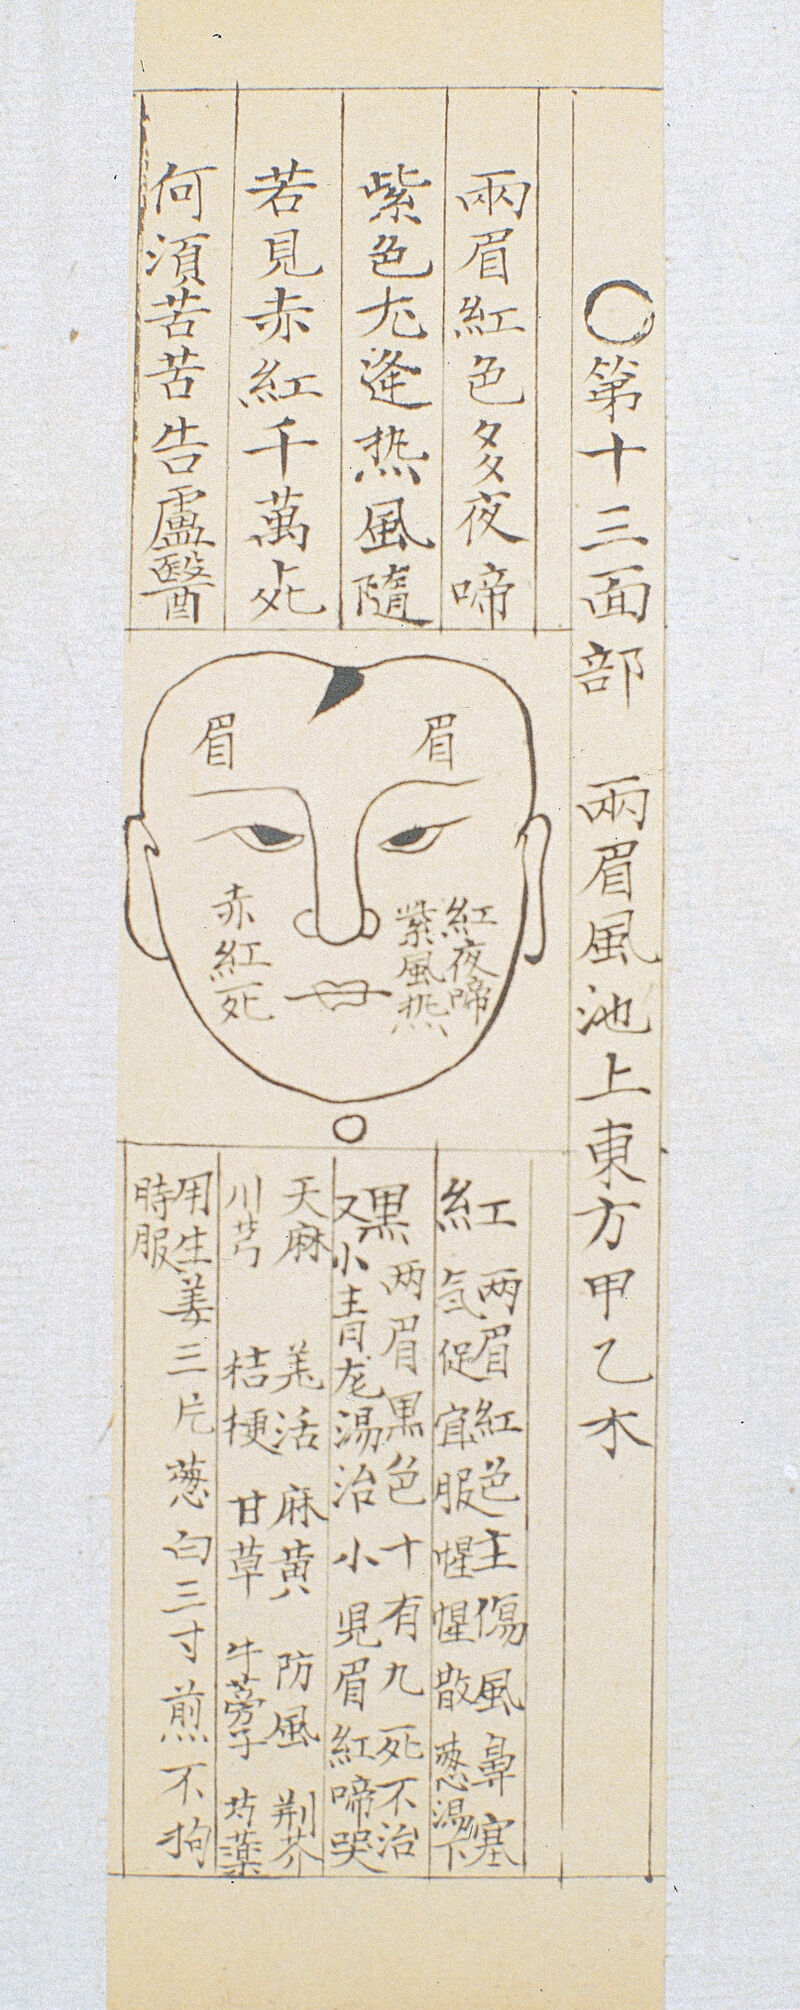 〇第十三面部　兩眉風池上東方甲乙木
兩眉紅色多夜啼
紫色尤逢热風隨
若見赤紅千萬死
何須苦苦告盧醫
眉
眉
紅夜啼
紫風热
赤紅死
紅 两眉紅色主傷風鼻塞
気促宜服惺惺散葱湯下
黒 两眉黒色十有九死不治
又小青龙湯治小児眉紅啼哭
天麻　羗活　麻黄　防風　荆芥
川芎　桔梗　甘草　牛蒡子　芍藥
用生姜三片葱白三寸煎不拘
時服